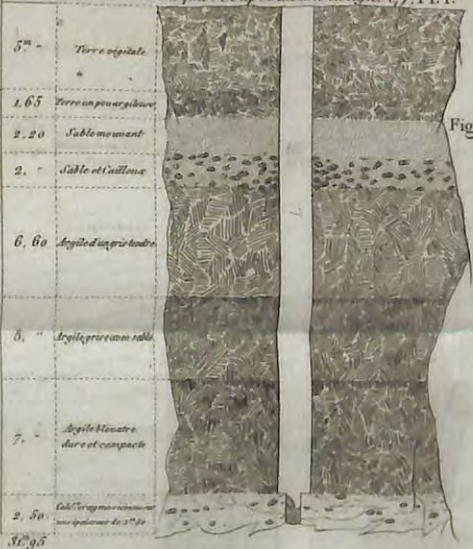 5m "
Terre végétale
" "
1,65 Terre un peu argileuse
2,20 Sable mouvant
Fig
2, " Sable et Cailloux
6,60 Argile d'un gris tendre
5, " Argile grise avec sable
7, " Argile bleuatre
dure et compacte
2,50
31m95